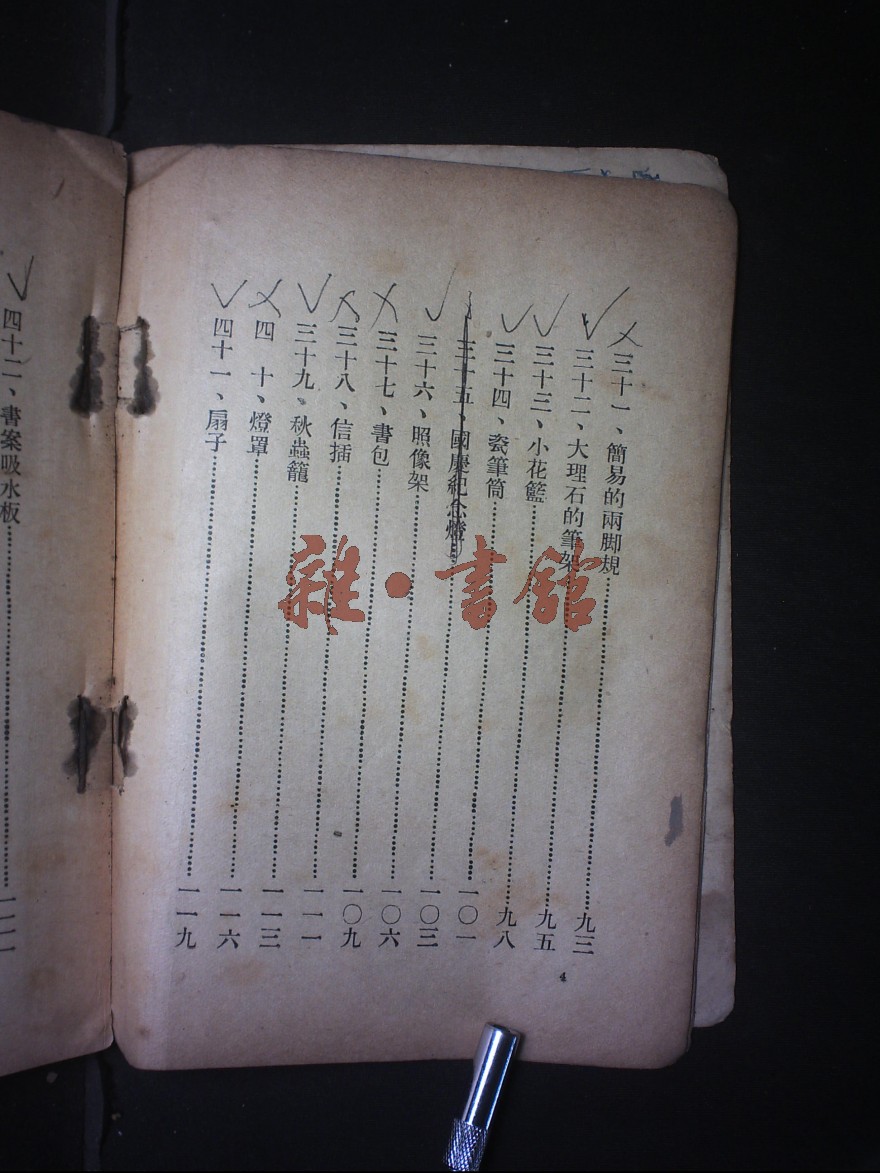 三十一、簡易的兩脚規……九三
三十二、大理石的筆架……九五
三十三、小花籃……九八
三十四、瓷筆筒……一〇一
三十五、國慶紀念燈……一〇三
三十六、照像架……一〇六
三十七、書包……一〇九
三十八、信插……一一一
三十九、秋蟲籠……一一三
四十、燈罩……一一六
四十一、扇子……一一九
4
四十二、書案吸水板……
雜·書館